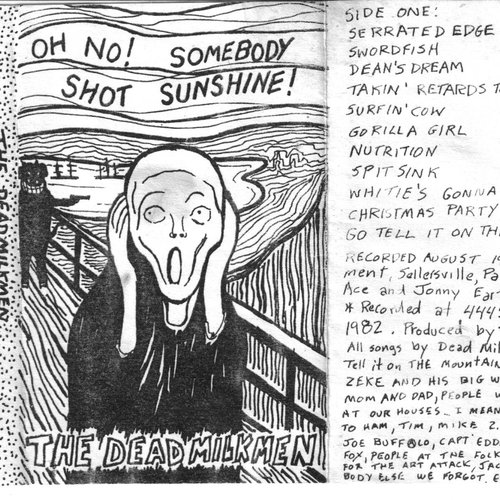 THE DEAD MILKMEN
OH NO! SOMEBODY
SHOT SUNSHINE!
THE DEAD MILKMEN
SIDE ONE:
SERRATED EDGE
SWORDFISH
DEAN'S DREAM
TAKIN' RETARDS T
SURFIN' COW
GORILLA GIRL
NUTRITION
SPIT SINK
WHITIE'S GONNA
CHRISTMAS PARTY
GO TELL IT ON TH
RECORDED AUGUST 19
ment, Sellersville, Pa
Ace and Jonny Ear
* Recorded at 444
1982. Produced by
All songs by Dead Mil
Tell it on THE MOUNTAIN
ZEKE AND HIS BIG W
MOM AND DAD, PEOPLE W
AT OUR HOUSES... I MEAN
TO HAM, TIM, MIKE Z.
JOE BUFFALO, CAPT' EDD
FOX, PEOPLE AT THE FOLK
FOR THE ART ATTACK, JA
BODY ELSE WE FORGOT. C